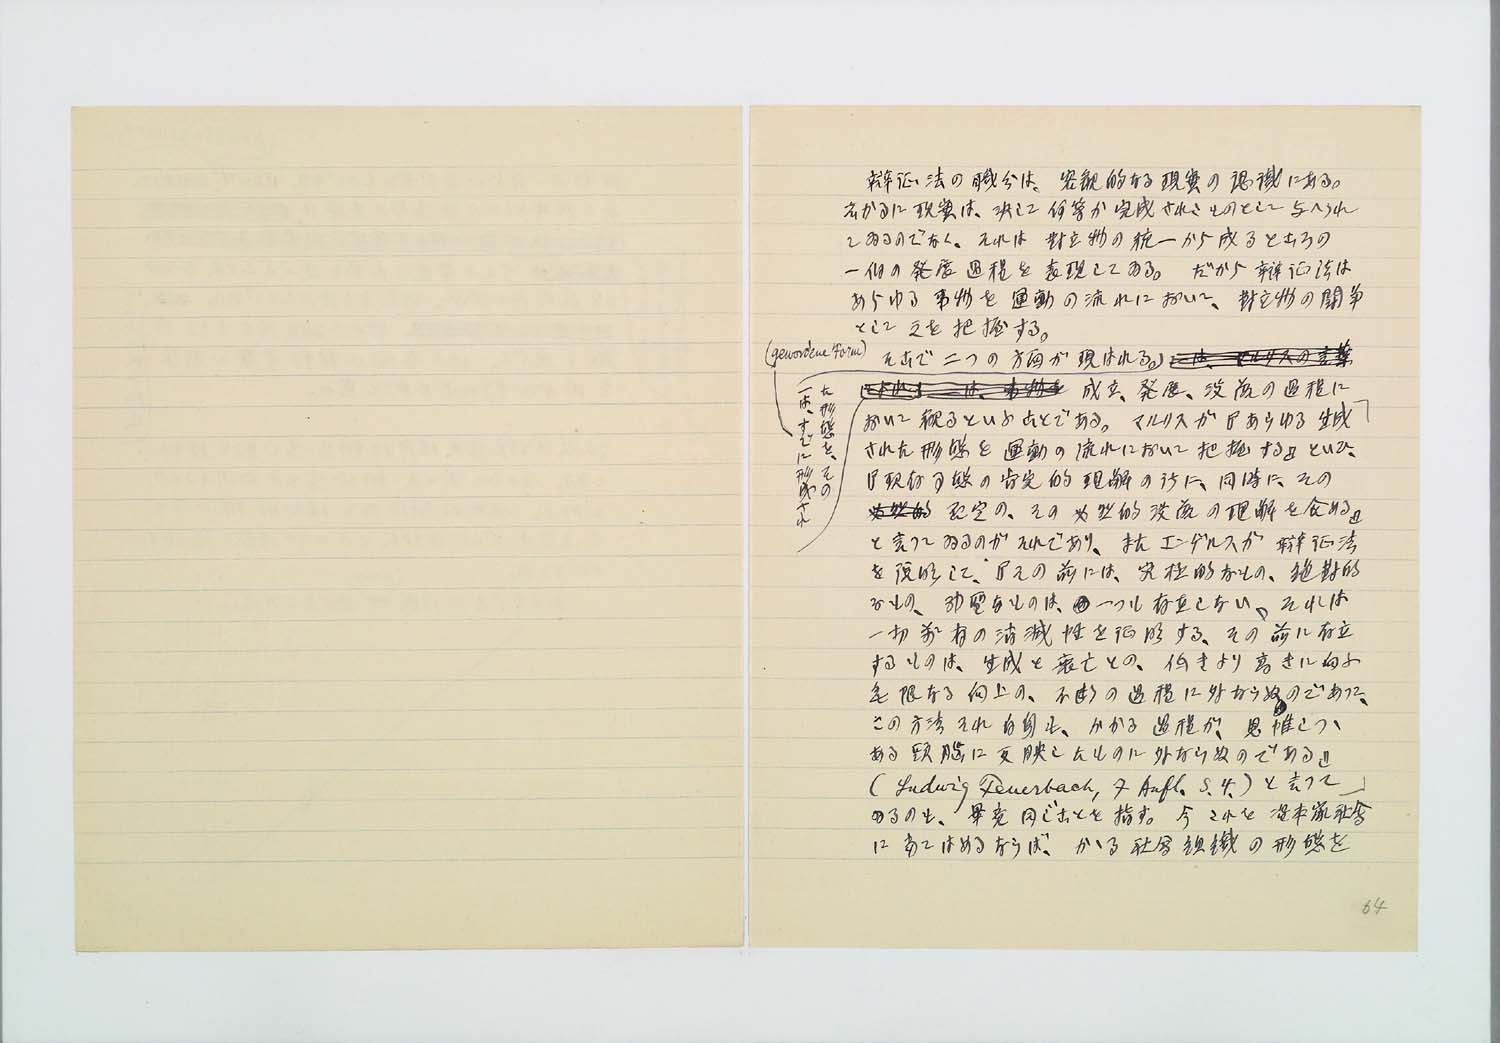 辯証法の職分は、客観的なる現実の認識にある。
しかるに現実は、決して何等か完成されたものとして与へられ
てゐるのでなく、それは対立物の統一から成るところの
一個の発展過程を表現してゐる。だから辯証法は
あらゆる事物を運動の流れにおいて、対立物の闘争
として之を把握する。
(gewordene Form)
そこで二つの方面が現はれる。は、マルクスの言葉
によれば は、事物を 成立、発展、没落の過程に
一は、すでに形成され
た形態を、その
おいて観るといふことである。マルクスが『あらゆる生成
された形態を運動の流れにおいて把握する』といひ、
『現存形態の肯定的理解の内に、同時に、その
必然的 否定の、その必然的没落の理解を含める』
と言つてゐるのがそれであり、またエンゲルスが辯証法
を説明して、『その前には、究極的なもの、絶対的
なもの、神聖なものは、一つも存立しない。それは
一切万有の消滅性を証明する、その前に存立
するものは、生成と衰亡との、低きより高きに向ふ
無限なる向上の、不断の過程に外ならぬのであつて、
この方法それ自身も、かかる過程が、思惟しつゝ
ある頭脳に反映したものに外ならぬのである』
(Ludwig Feuerbach, 7 Aufl. S. 4.) と言つて
ゐるのも、畢竟同じことを指す。今これを資本家社会
に当てはめるならば、かゝる社会組織の形態を
64